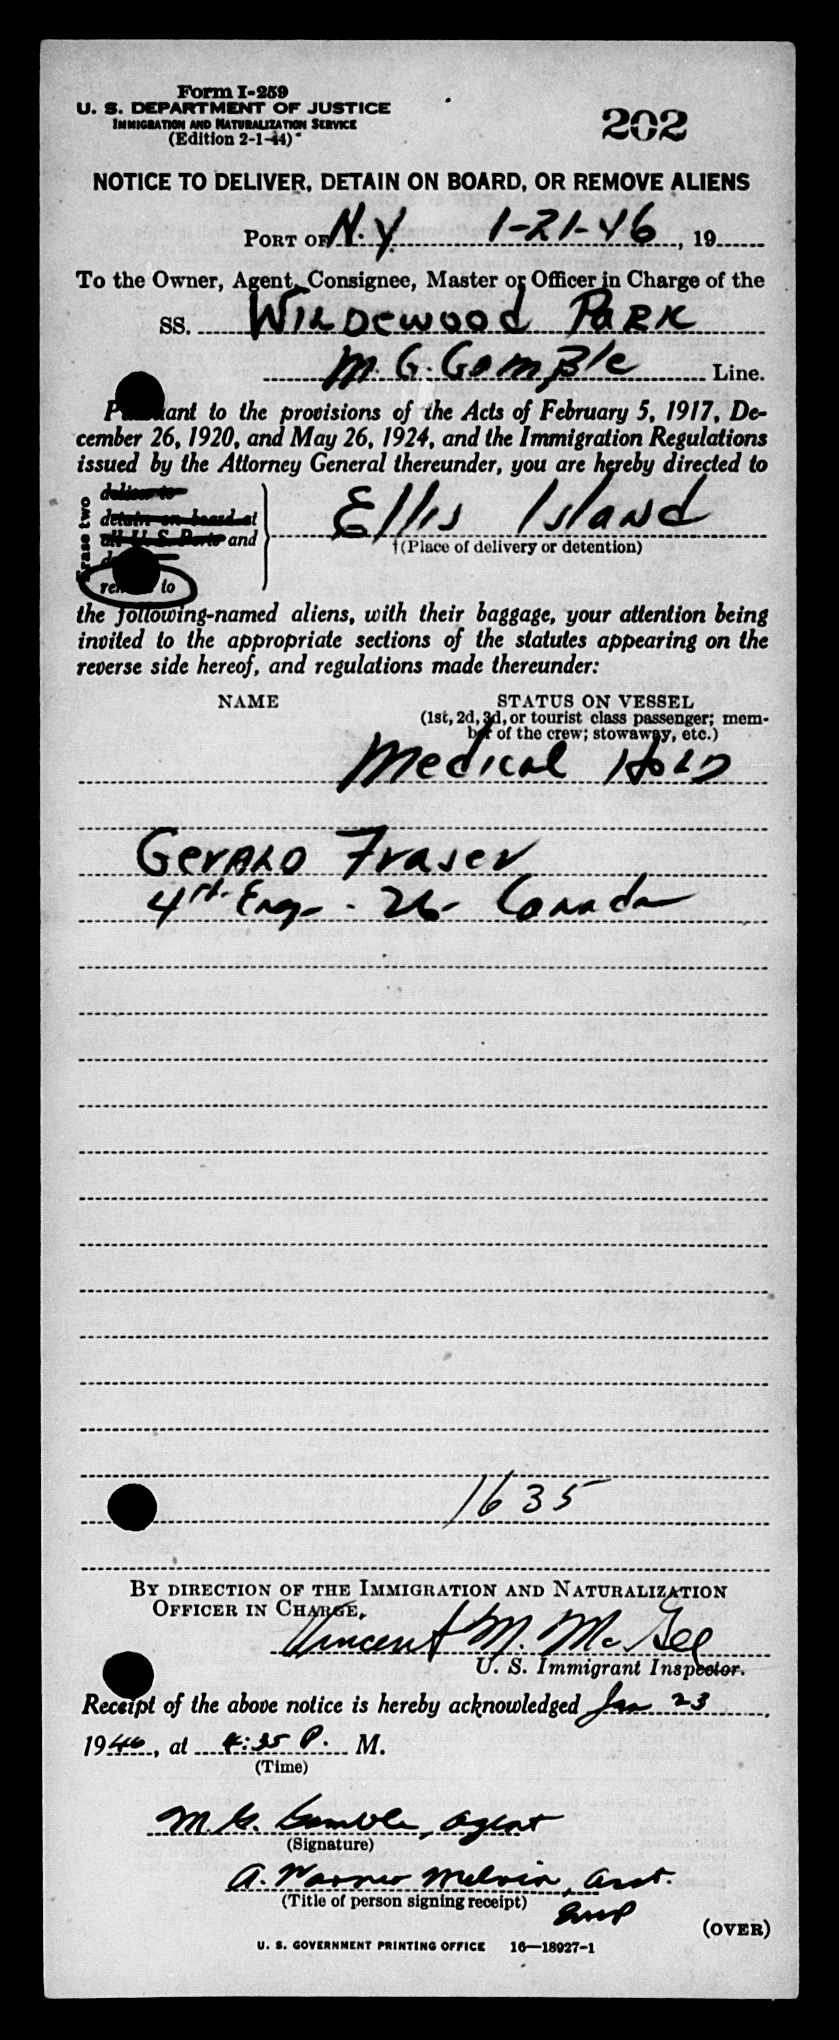 Form I-259
U. S. DEPARTMENT OF JUSTICE
IMMIGRATION AND NATURALIZATION SERVICE
(Edition 2-1-44)
202
NOTICE TO DELIVER, DETAIN ON BOARD, OR REMOVE ALIENS
PORT OF N.Y. 1-21-46, 19
To the Owner, Agent, Consignee, Master or Officer in Charge of the
SS. WILDEWOOD PARK
M. G. GamBle Line.
Pursuant to the provisions of the Acts of February 5, 1917, De-
cember 26, 1920, and May 26, 1924, and the Immigration Regulations
issued by the Attorney General thereunder, you are hereby directed to
Erase two
deliver to
detain on board at
all U. S. Ports and
remove to
Ellis Island
†(Place of delivery or detention)
the following-named aliens, with their baggage, your attention being
invited to the appropriate sections of the statutes appearing on the
reverse side hereof, and regulations made thereunder:
NAME STATUS ON VESSEL
(1st, 2d, 3d, or tourist class passenger; mem-
ber of the crew; stowaway, etc.)
Medical Hold
Gerald Fraser
4th Eng. - 26 - Canada
1635
BY DIRECTION OF THE IMMIGRATION AND NATURALIZATION
OFFICER IN CHARGE,
Vincent M. McGee
U. S. Immigrant Inspector.
Receipt of the above notice is hereby acknowledged Jan 23,
1946, at 4:35 P. M.
(Time)
M. G. Gamble, agent
(Signature)
A. Warner Melvin, asst.
(Title of person signing receipt)
(OVER)
U. S. GOVERNMENT PRINTING OFFICE 16—18927-1